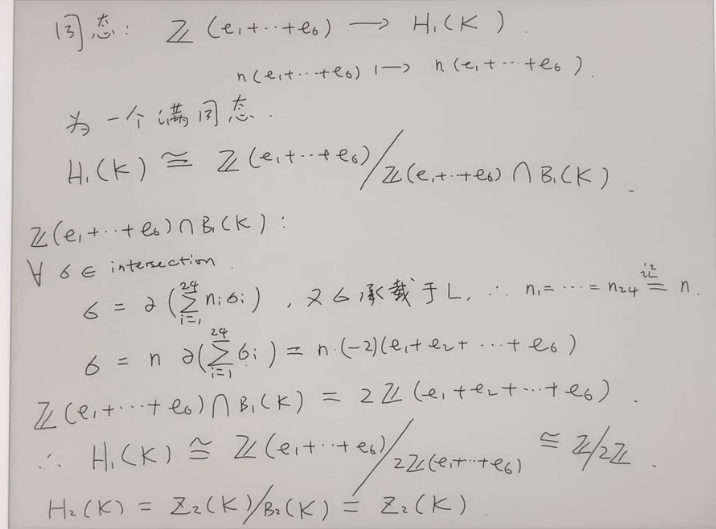 同态: ℤ(e₁+⋯+e₆) ⟶ H₁(K).
n(e₁+⋯+e₆) ↦ n(e₁+⋯+e₆).
为一个满同态.
H₁(K) ≅ ℤ(e₁+⋯+e₆)/ℤ(e₁+⋯+e₆)∩B₁(K).
ℤ(e₁+⋯+e₆)∩B₁(K):
∀ σ ∈ intersection.
σ = ∂(∑_{i=1}^{24} nᵢσᵢ), 又σ承载于L, ∴ n₁=⋯=n₂₄ \overset{记}{=} n.
σ = n ∂(∑_{i=1}^{24} σᵢ) = n·(-2)(e₁+e₂+⋯+e₆)
ℤ(e₁+⋯+e₆)∩B₁(K) = 2ℤ(e₁+e₂+⋯+e₆).
∴ H₁(K) ≅ ℤ(e₁+⋯+e₆)/2ℤ(e₁+⋯+e₆) ≅ ℤ/2ℤ.
H₂(K) = Z₂(K)/B₂(K) = Z₂(K).